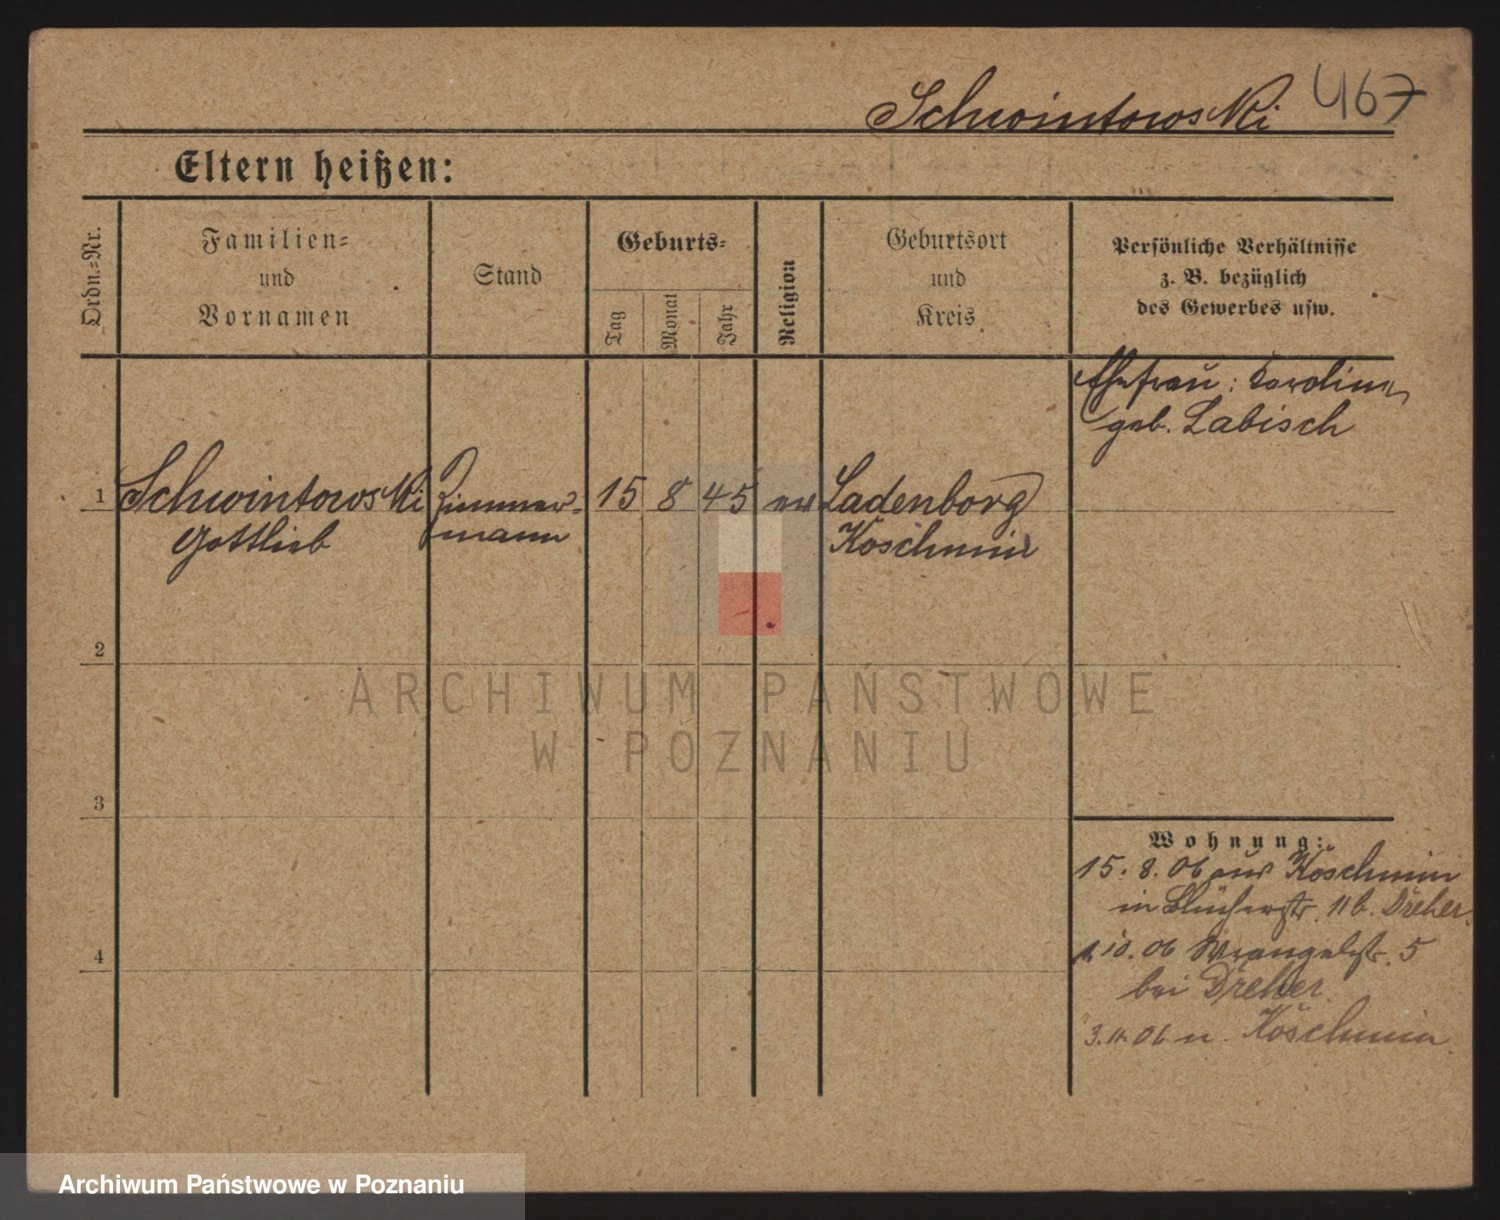 Schwintowski 467
Eltern heißen:
Ordn.-Nr.
Familien-
und
Vornamen
Stand
Geburts-
Tag
Monat
Jahr
Religion
Geburtsort
und
Kreis
Persönliche Verhältnisse
z. B. bezüglich
des Gewerbes usw.
Ehefrau: Karoline
geb. Labisch
1 Schwintowski Zimmer- 15 8 45 ev Ladenborg
Gottlieb mann Koschmin
2
ARCHIWUM PAŃSTWOWE
W POZNANIU
3
Wohnung:
15. 8. 06 aus Koschmin
in Blücherstr. 11 b. Dreher.
1. 10. 06 Wrangelstr. 5
4
bei Dreher
3. 11. 06 n. Koschmin
Archiwum Państwowe w Poznaniu